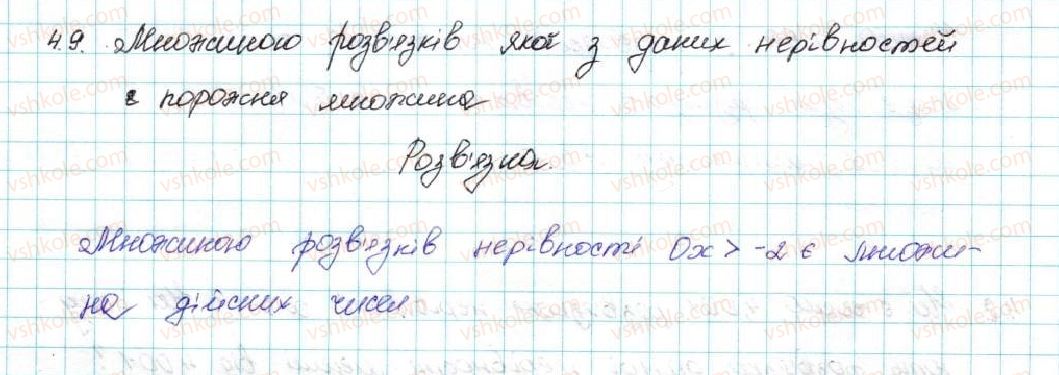 4.9. Множиною розв'язків якої з даних нерівностей
є порожня множина
Розв'язка.
Множиною розв'язків нерівності 0x > -2 є множи-
на дійсних чисел.